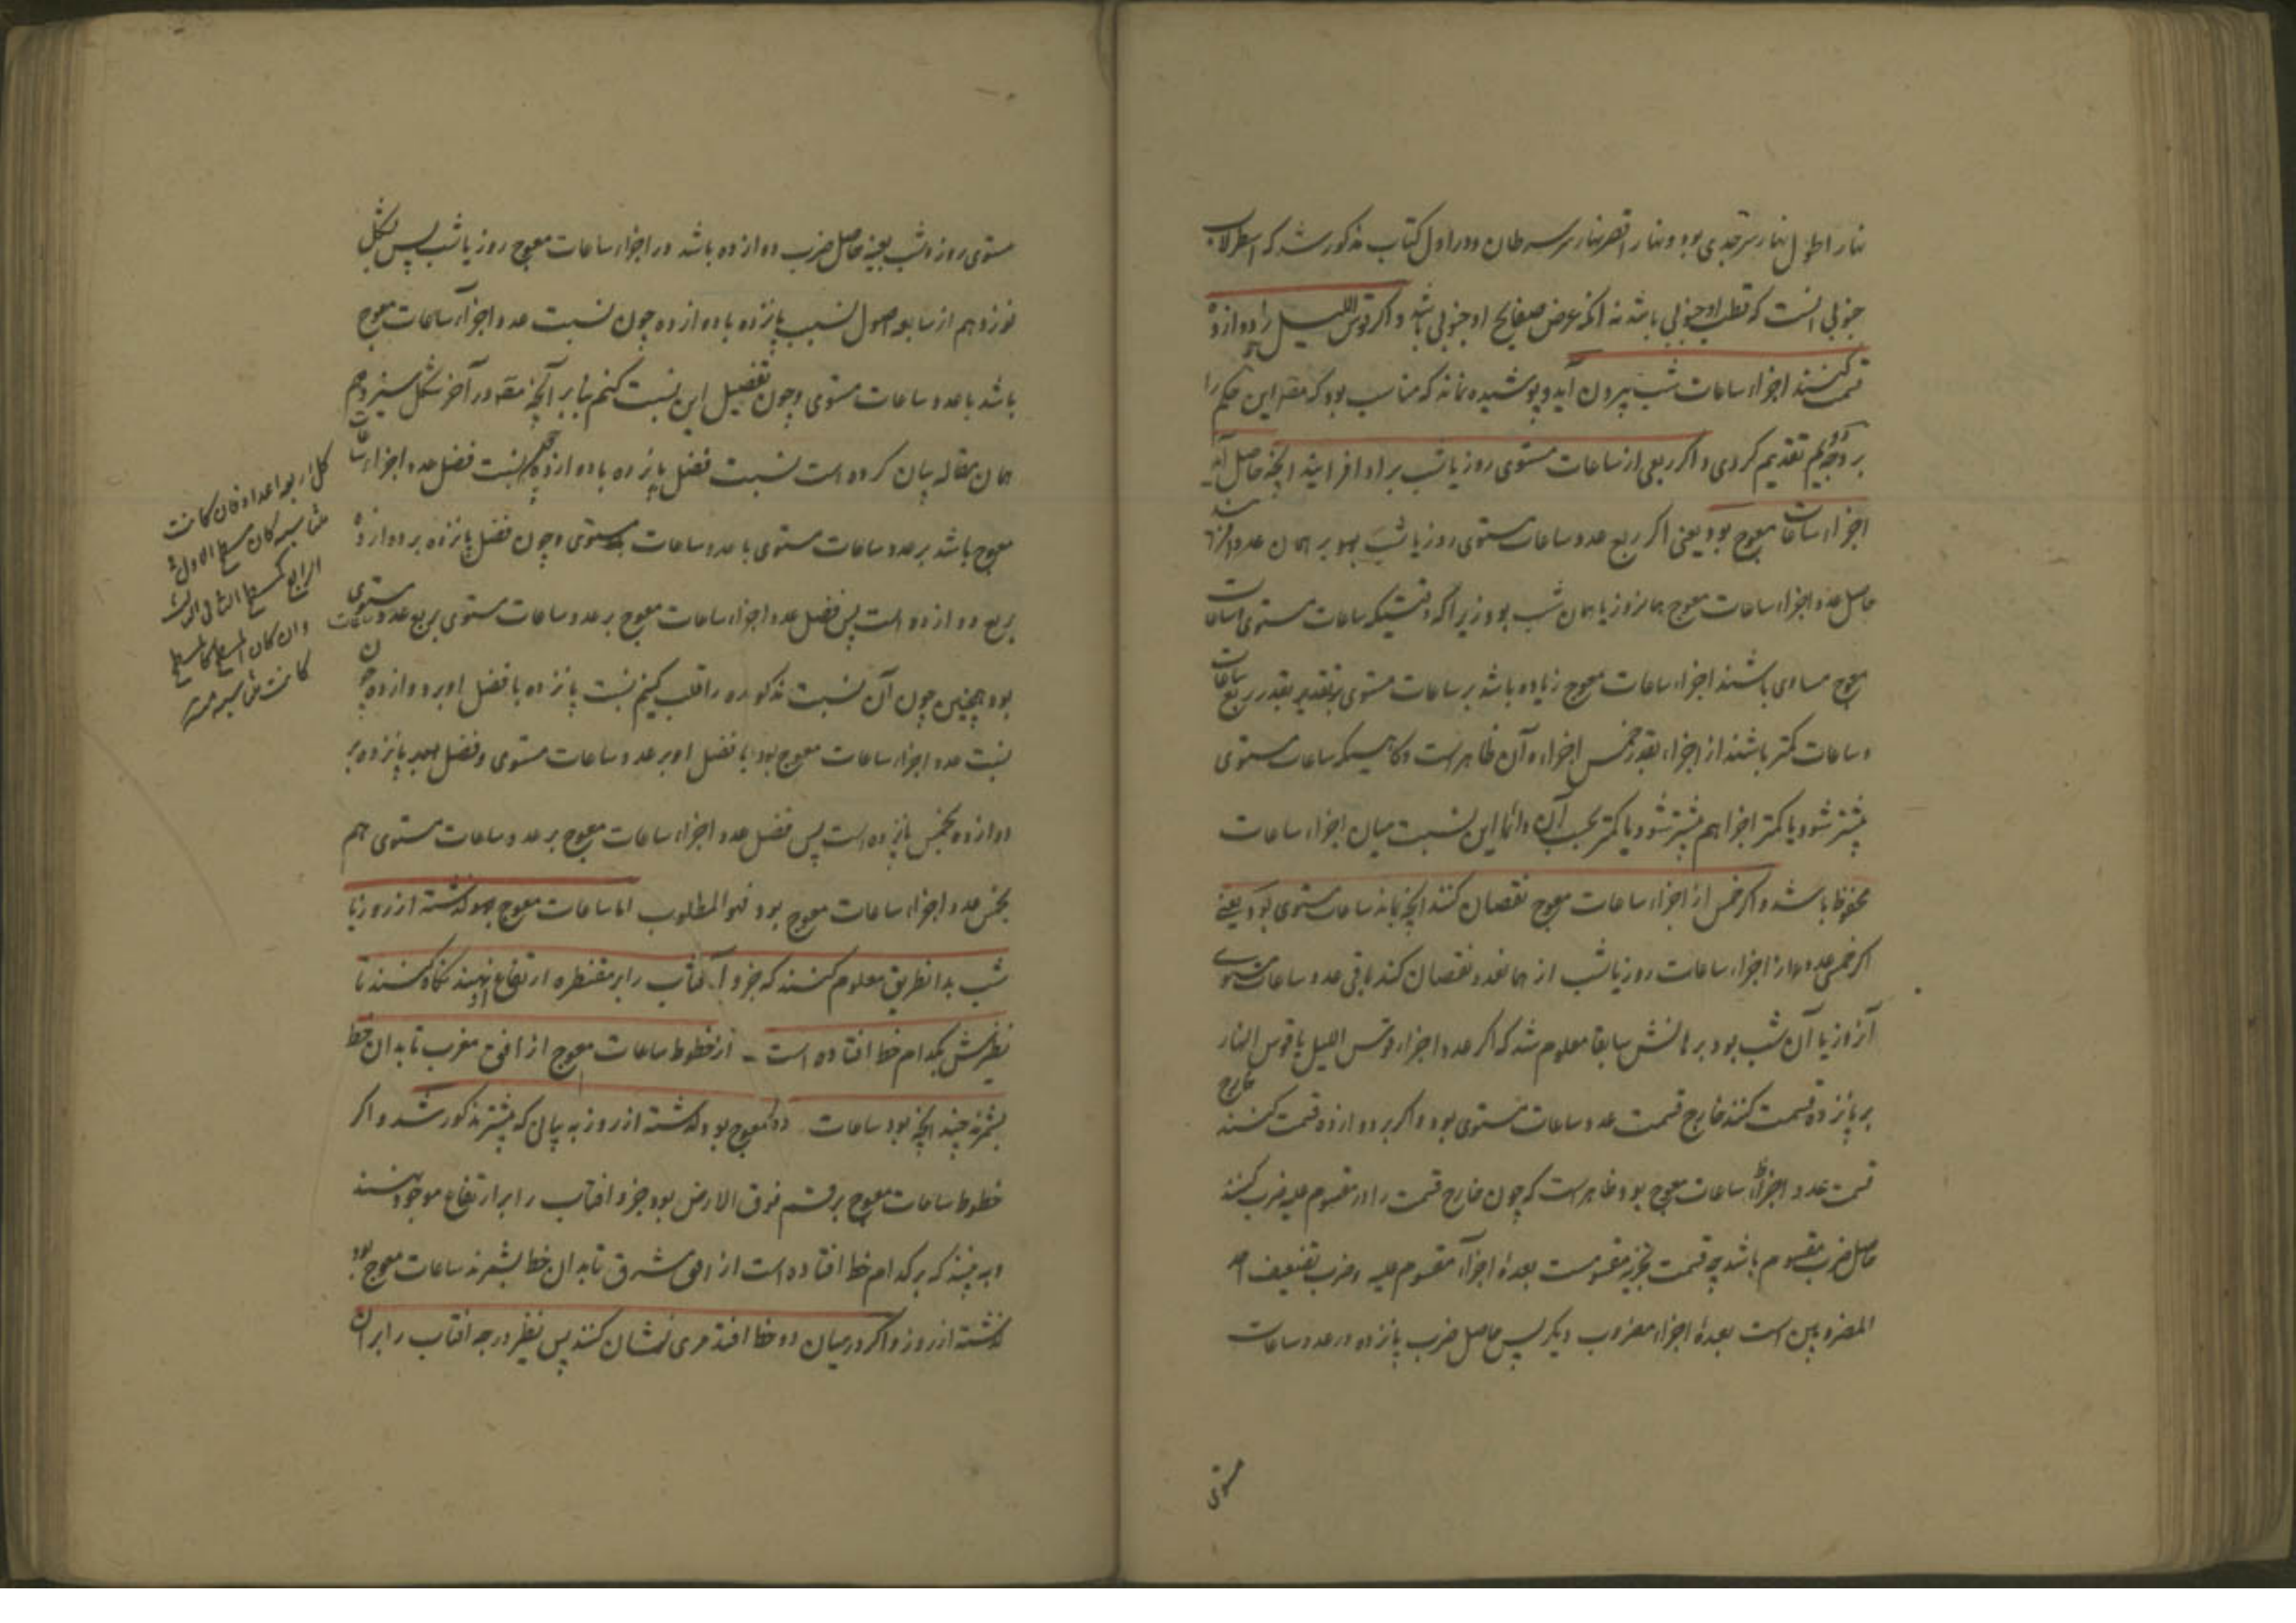 نهار اطول نهار سرجدی بود و نهار اقصر نهار سرسرطان و در اول کتاب مذکور شد که اسطرلاب
جنوبی آنست که قطب او جنوبی باشد نه آنکه عرض صفایح او جنوبی باشد و اگر قوس اللیل را بر دوازده
قسمت کنند اجزاء ساعات شب بیرون آید و پوشیده نماند که مناسب بود که مصنف این حکم را
بر دو حکم تقدیم کردی و اگر ربعی از ساعات مستوی روز یا شب بر او افزایند آنچه حاصل آید
اجزاء ساعات معوج بود یعنی اگر ربع عدد ساعات مستوی روز یا شب بر همان عدد افزایند
حاصل عدد اجزاء ساعات معوج همانروز یا همان شب بود زیرا که وقتیکه ساعات مستوی با ساعات
معوج مساوی باشند اجزاء ساعات معوج زیاده باشد بر ساعات مستوی بقدر ربع ساعات
و ساعات کمتر باشند از اجزاء بقدر خمس اجزاء و آن ظاهرست و گاهیکه ساعات مستوی
بیشتر شود یا کمتر اجزا هم بیشتر شود یا کمتر بحسب آن و دائما این نسبت میان اجزاء ساعات
محفوظ باشد و اگر خمس از اجزاء ساعات معوج نقصان کنند آنچه بماند ساعات مستوی بود یعنی
اگر خمس عدد اجزاء ساعات روز یا شب از همانعدد نقصان کند باقی عدد ساعات مستوی
آنروز یا آن شب بود برهانش سابقا معلوم شد که اگر عدد اجزاء قوس اللیل یا قوس النهار
بر پانزده قسمت کنند خارج قسمت عدد ساعات مستوی بود و اگر بر دوازده قسمت کنند خارج
قسمت عدد اجزاء ساعات معوج بود و ظاهرست که چون خارج قسمت را در مقسوم علیه ضرب کنند
حاصل ضرب مقسوم باشد چه قسمت تجزیه مقسومست بعدة اجزاء مقسوم علیه و ضرب تضعیف احد
المضروبین است بعدة اجزاء مضروب دیگر پس حاصل ضرب پانزده در عدد ساعات
مستوی
مستوی روز و شب بعینه حاصل ضرب دوازده باشد در اجزاء ساعات معوج روز یا شب پس بشکل
نوزدهم از سابعه اصول نسبت پانزده با دوازده چون نسبت عدد اجزاء ساعات معوج
باشد با عدد ساعات مستوی و چون تفضیل این نسبت کنیم بنابر آنچه مصنف در آخر شکل سیزدهم
همان مقاله بیان کرده است نسبت فضل پانزده با دوازده چون نسبت فضل عدد اجزاء ساعات
معوج باشد بر عدد ساعات مستوی با عدد ساعات مستوی و چون فضل پانزده بر دوازده
بربع دوازده است پس فضل عدد اجزاء ساعات معوج بر عدد ساعات مستوی بربع عدد ساعات مستوی
بود همچنین چون آن نسبت مذکوره را قلب کنیم نسبت پانزده با فضل او بر دوازده چون
نسبت عدد اجزاء ساعات معوج بود با فضل او بر عدد ساعات مستوی و فضل پانزده بر
دوازده بخمس پانزده است پس فضل عدد اجزاء ساعات معوج بر عدد ساعات مستوی هم
بخمس عدد اجزاء ساعات معوج بود فهو المطلوب اما ساعات معوج گذشته از روز یا
شب بدانطریق معلوم کنند که جزو آفتاب را بر مقنطره ارتفاع او نهند نگاه کنند تا
نظیرش بکدام خط افتاده است از خطوط ساعات معوج از افق مغرب تا بدان خط
بشمرند چند آنچه بود ساعات معوج بود گذشته از روز به بیانی که بیشتر مذکور شد و اگر
خطوط ساعات معوج بر قسم فوق الارض بود جزو آفتاب را بر ارتفاع موجود نهند
و ببینند که بر کدام خط افتاده است از افق مشرق تا بدان خط بشمرند ساعات معوج بود
گذشته از روز و اگر در میان دو خط افتد مری نشان کنند پس نظیر درجه آفتاب را بر آن
کل اربعة اعداد فان کانت
متناسبه کان مسطح الاول فی
الرابع کمسطح الثانی فی الثالث
وان کان المسطح کالمسطح
کانت متناسبه